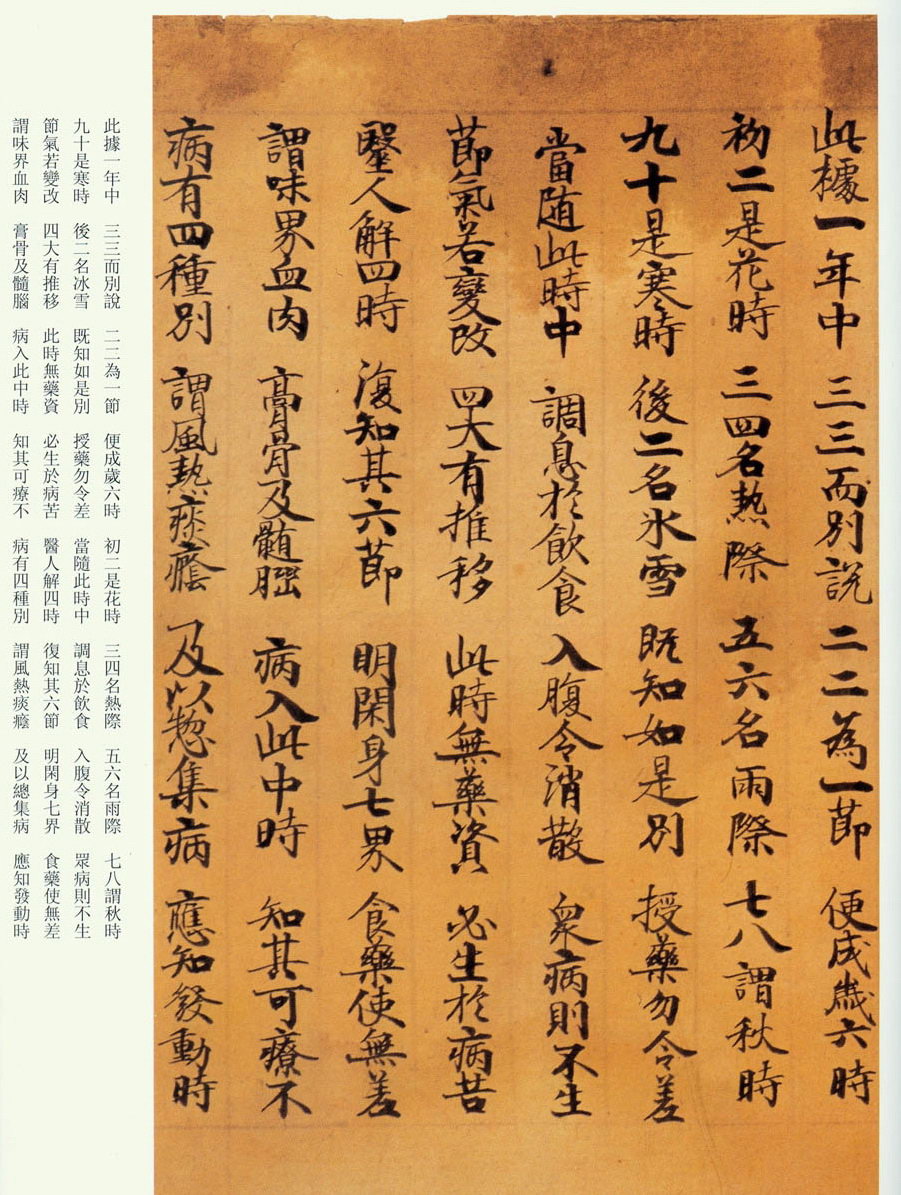 此據一年中 三三而別說 二二為一節 便成歲六時
初二是花時 三四名熱際 五六名雨際 七八謂秋時
九十是寒時 後二名氷雪 既知如是別 授藥勿令差
當随此時中 調息於飲食 入腹令消散 衆病則不生
節氣若變改 四大有推移 此時無藥資 必生於病苦
毉人解四時 復知其六節 明閑身七界 食藥使無差
謂味界血肉 膏骨及髓腦 病入此中時 知其可療不
病有四種別 謂風熱痰癊 及以惣集病 應知發動時
此據一年中 三三而別說 二二為一節 便成歲六時 初二是花時 三四名熱際 五六名雨際 七八謂秋時
九十是寒時 後二名冰雪 既知如是別 授藥勿令差 當隨此時中 調息於飲食 入腹令消散 眾病則不生
節氣若變改 四大有推移 此時無藥資 必生於病苦 醫人解四時 復知其六節 明閑身七界 食藥使無差
謂味界血肉 膏骨及髓腦 病入此中時 知其可療不 病有四種別 謂風熱痰癊 及以總集病 應知發動時